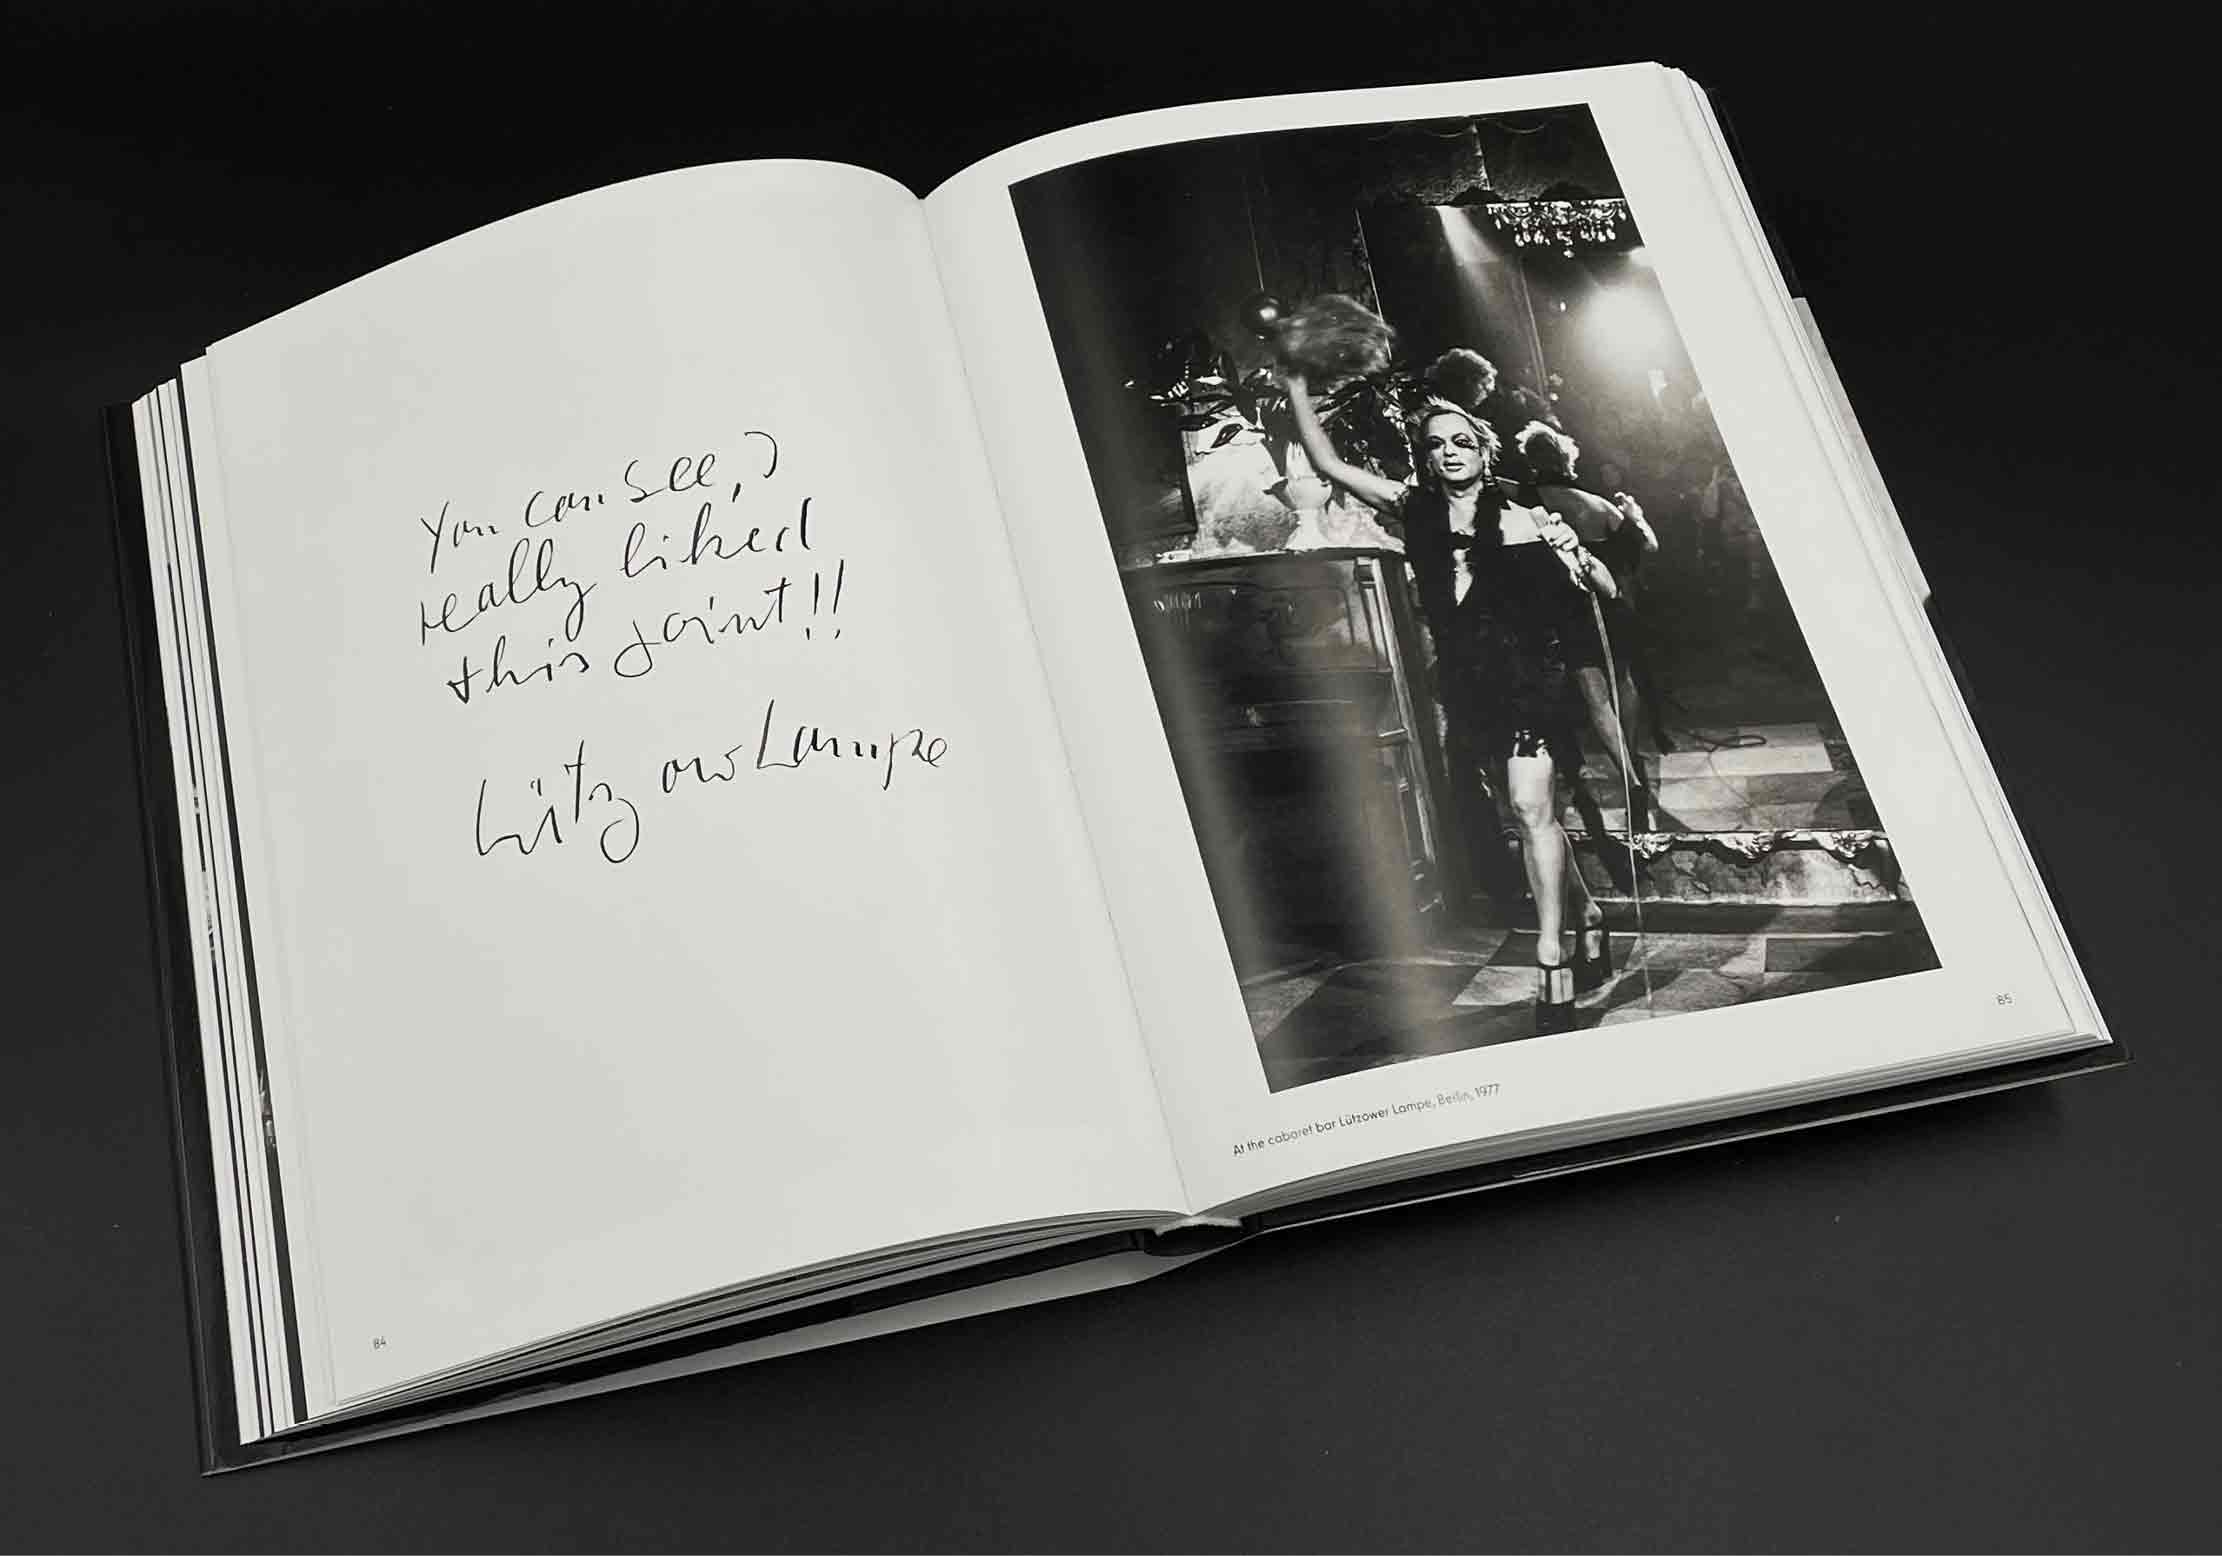 You can see, I
really liked
this joint!!
Lützow Lampe
84
85
At the cabaret bar Lützower Lampe, Berlin, 1977